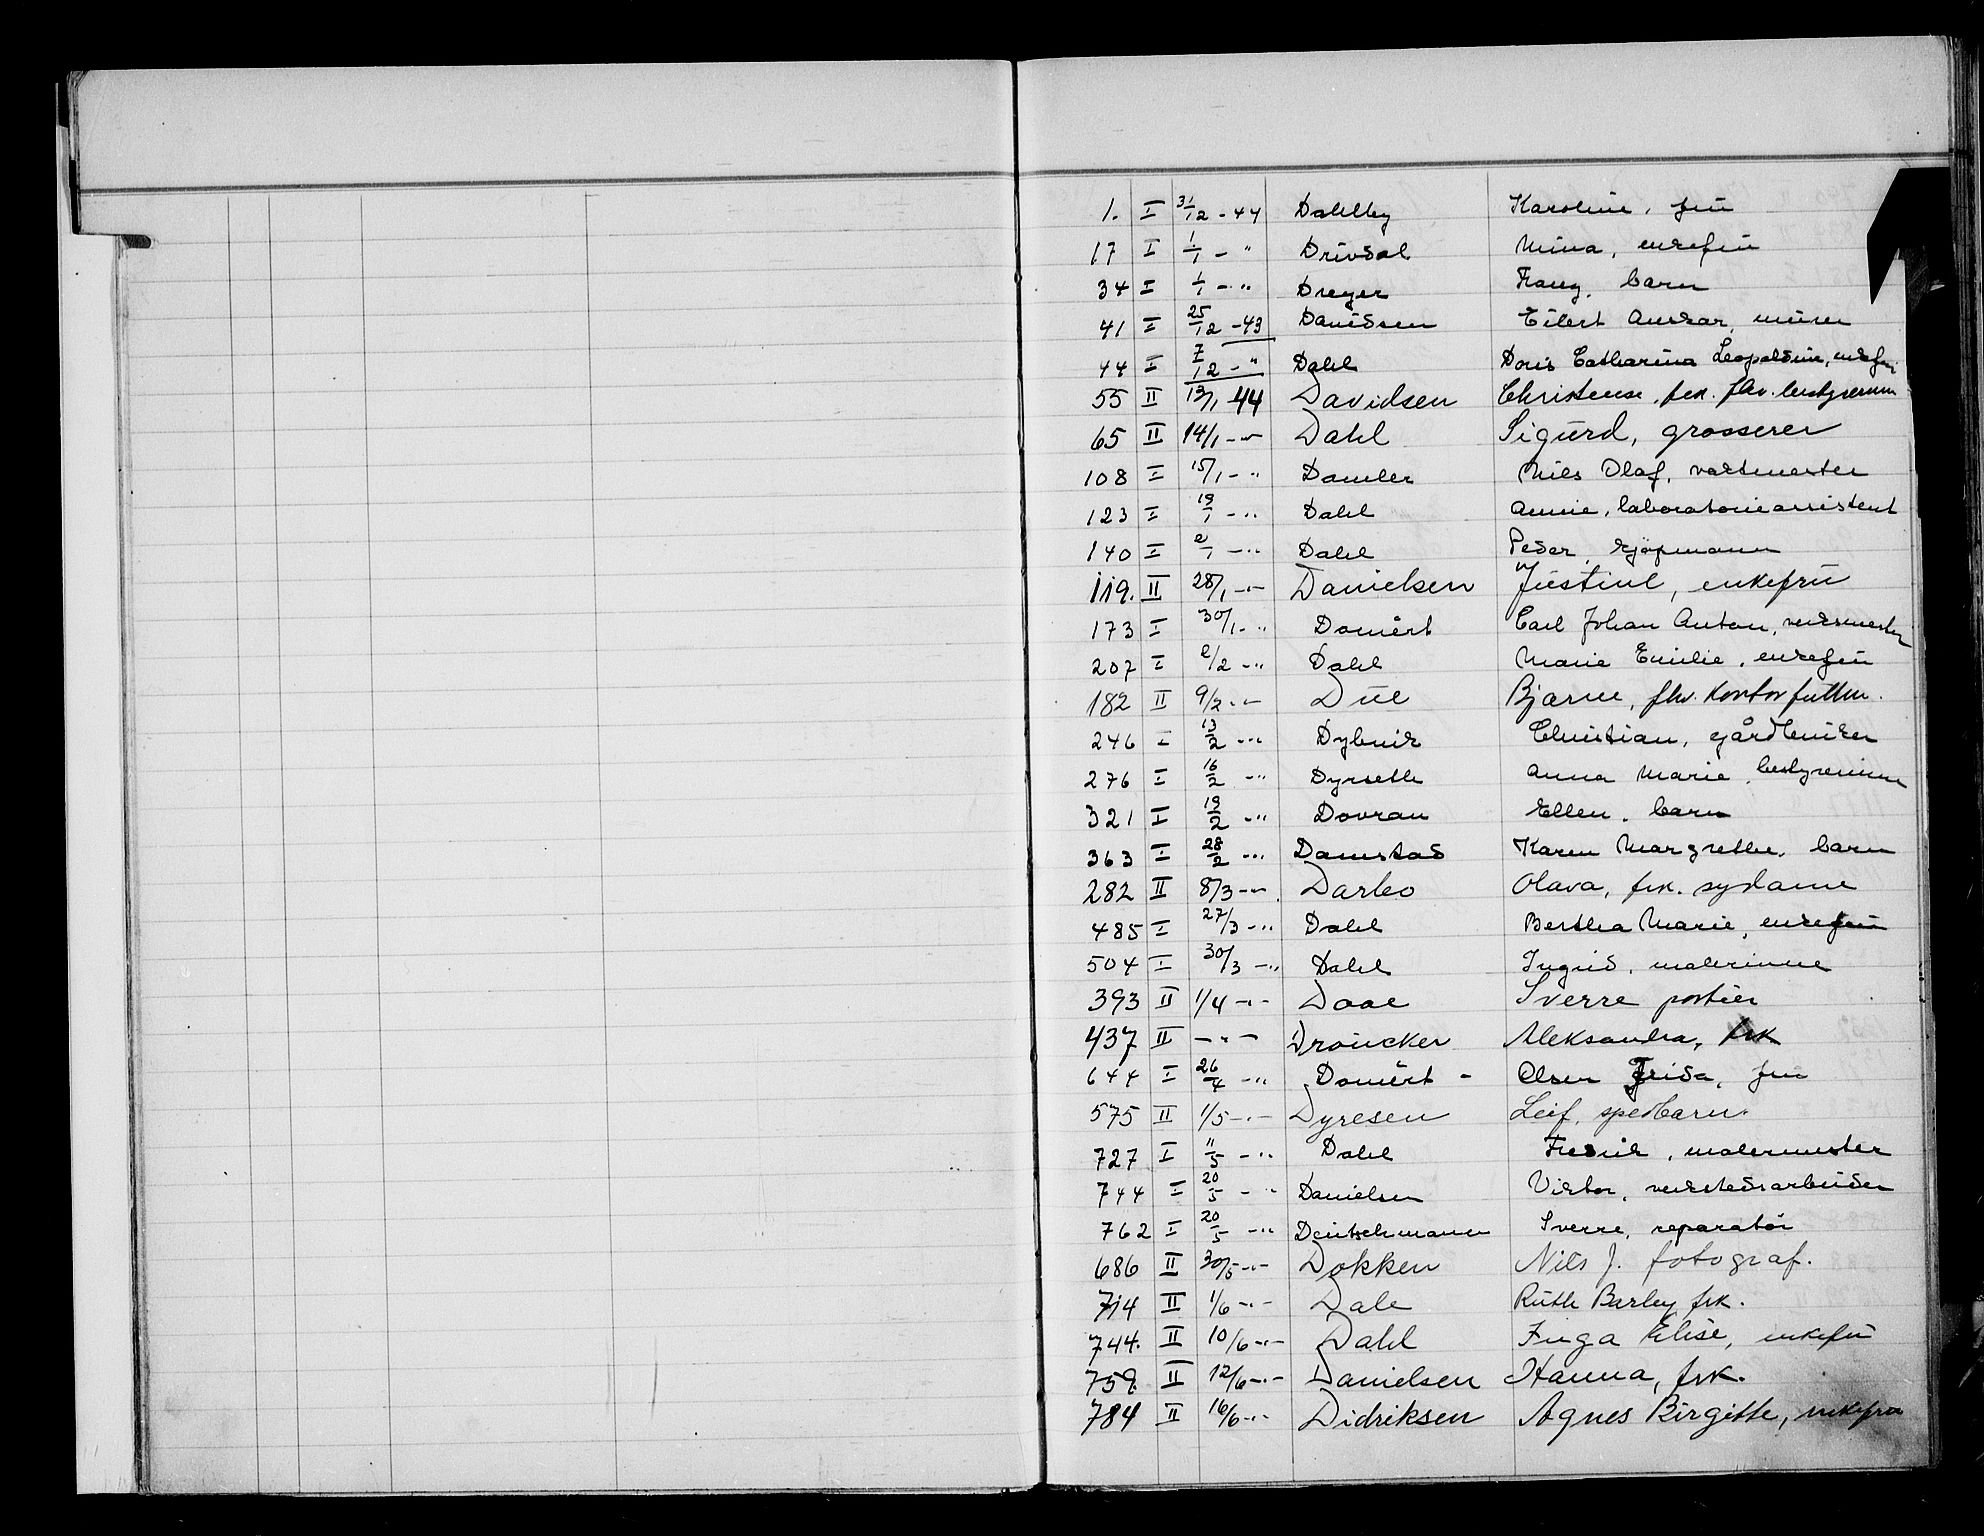 1. I 31/12 - 44 Dahlby Karoline, frü
17 I 1/1 - " Drivdal Mina, enkefrü
34 I 1/1 - " Dreyer barn
41 I 25/12 - 43 Davidsen Eilert Anskar, mürer
44 I 7/12 - " Dahl Doris Catharina Leopoldine, enkefrü
55 II 13/1 44 Davidsen Christense, frk. fhv. bestyrerinne
65 II 14/1 - " - Dahl Sigürd, grosserer
108 I 15/1 - " Damler Nils Olaf, vaktmester
123 I 19/1 - " Dahl Annie, laboratorieassistent
140 I 2/1 - " Dahl Peder, kjøpmann
119. II 28/1 - " - Danielsen Jüstine, enkefrü
173 I 30/1 - " Domért Carl Johan Anton, verksmester
207 I 2/2 - " Dahl Marie Emilie, enkefrü
182 II 9/2 - " - Düe Bjarne, fhv. kontorfullm.
246 I 13/2 - " Dybvik Christian, gårdbruker
276 I 16/2 - " Dyrseth Anna Marie, bestyrerinne
321 I 19/2 - " Dovran Ellen, barn
363 I 28/2 - " Damstad Karen Margrethe, barn
282 II 8/3 - " - Darbo Olava, frk. sydame
485 I 27/3 - " Dahl Bertha Marie, enkefrü
504 I 30/3 - " Dahl Ingrid, malerinne
393 II 1/4 - " - Daae Sverre portier
437 II - " - Droücker Aleksandra, frk
644 I 26/4 - " Domért - Olsen Frida, frü
575 II 1/5 - " - Dyresen Leif, spedbarn.
727 I 11/5 - " Dahl Fredrik, malermester
744 I 20/5 - " Danielsen Viktor, verkstedsarbeider
762 I 20/5 - " Deütschmann Sverre, reparatør
686 II 30/5 - " - Dokken Nils J. fotograf.
714 II 1/6 - " - Dale Rüth Barley frk.
744. II 10/6 - " - Dahl Inga Elise, enkefrü
759. II 12/6 - " - Danielsen Hanna, frk.
784 II 16/6 - " - Didriksen Agnes Birgitte, enkefrü